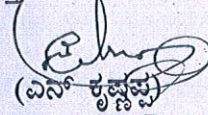 (ಎನ್ ಕೃಷ್ಣಪ್ಪ)